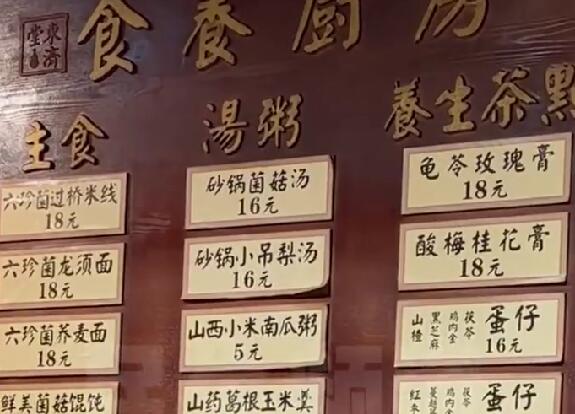 食養厨房
主食
六珍菌过桥米线
18元
六珍菌龙须面
18元
六珍菌荞麦面
18元
鲜美菌菇馄饨
湯粥
砂锅菌菇汤
16元
砂锅小吊梨汤
16元
山西小米南瓜粥
5元
山药葛根玉米羹
養生茶點
龟苓玫瑰膏
18元
酸梅桂花膏
18元
山楂 黑芝麻 鸡内金 茯苓 蛋仔
16元
蛋仔